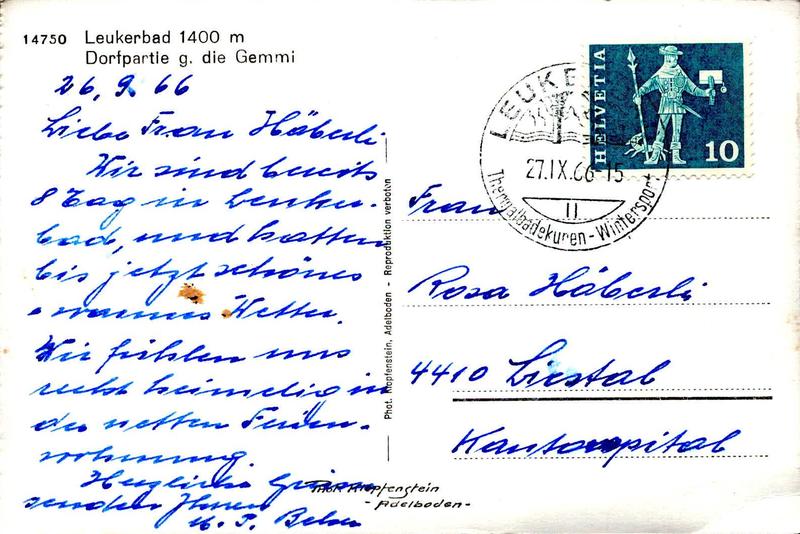 14750 Leukerbad 1400 m
Dorfpartie g. die Gemmi
26.9.66
Liebe Frau Häberli
Wir sind bereits
8 Tag in Leuker-
bad, und hatten
bis jetzt schönes
warmes Wetter.
Wir fühlen uns
recht heimelig in
der netten Ferien-
wohnung.
Herzliche Grüsse
senden Ihnen
Phot. Klopfenstein, Adelboden - Reproduktion verboten
Phot. Klopfenstein
- Adelboden -
HELVETIA
10
LEUKERBAD
27.IX.66-15
II
Thermalbadekuren - Wintersport
Frau
Rosa Häberli
4410 Liestal
Kantonspital